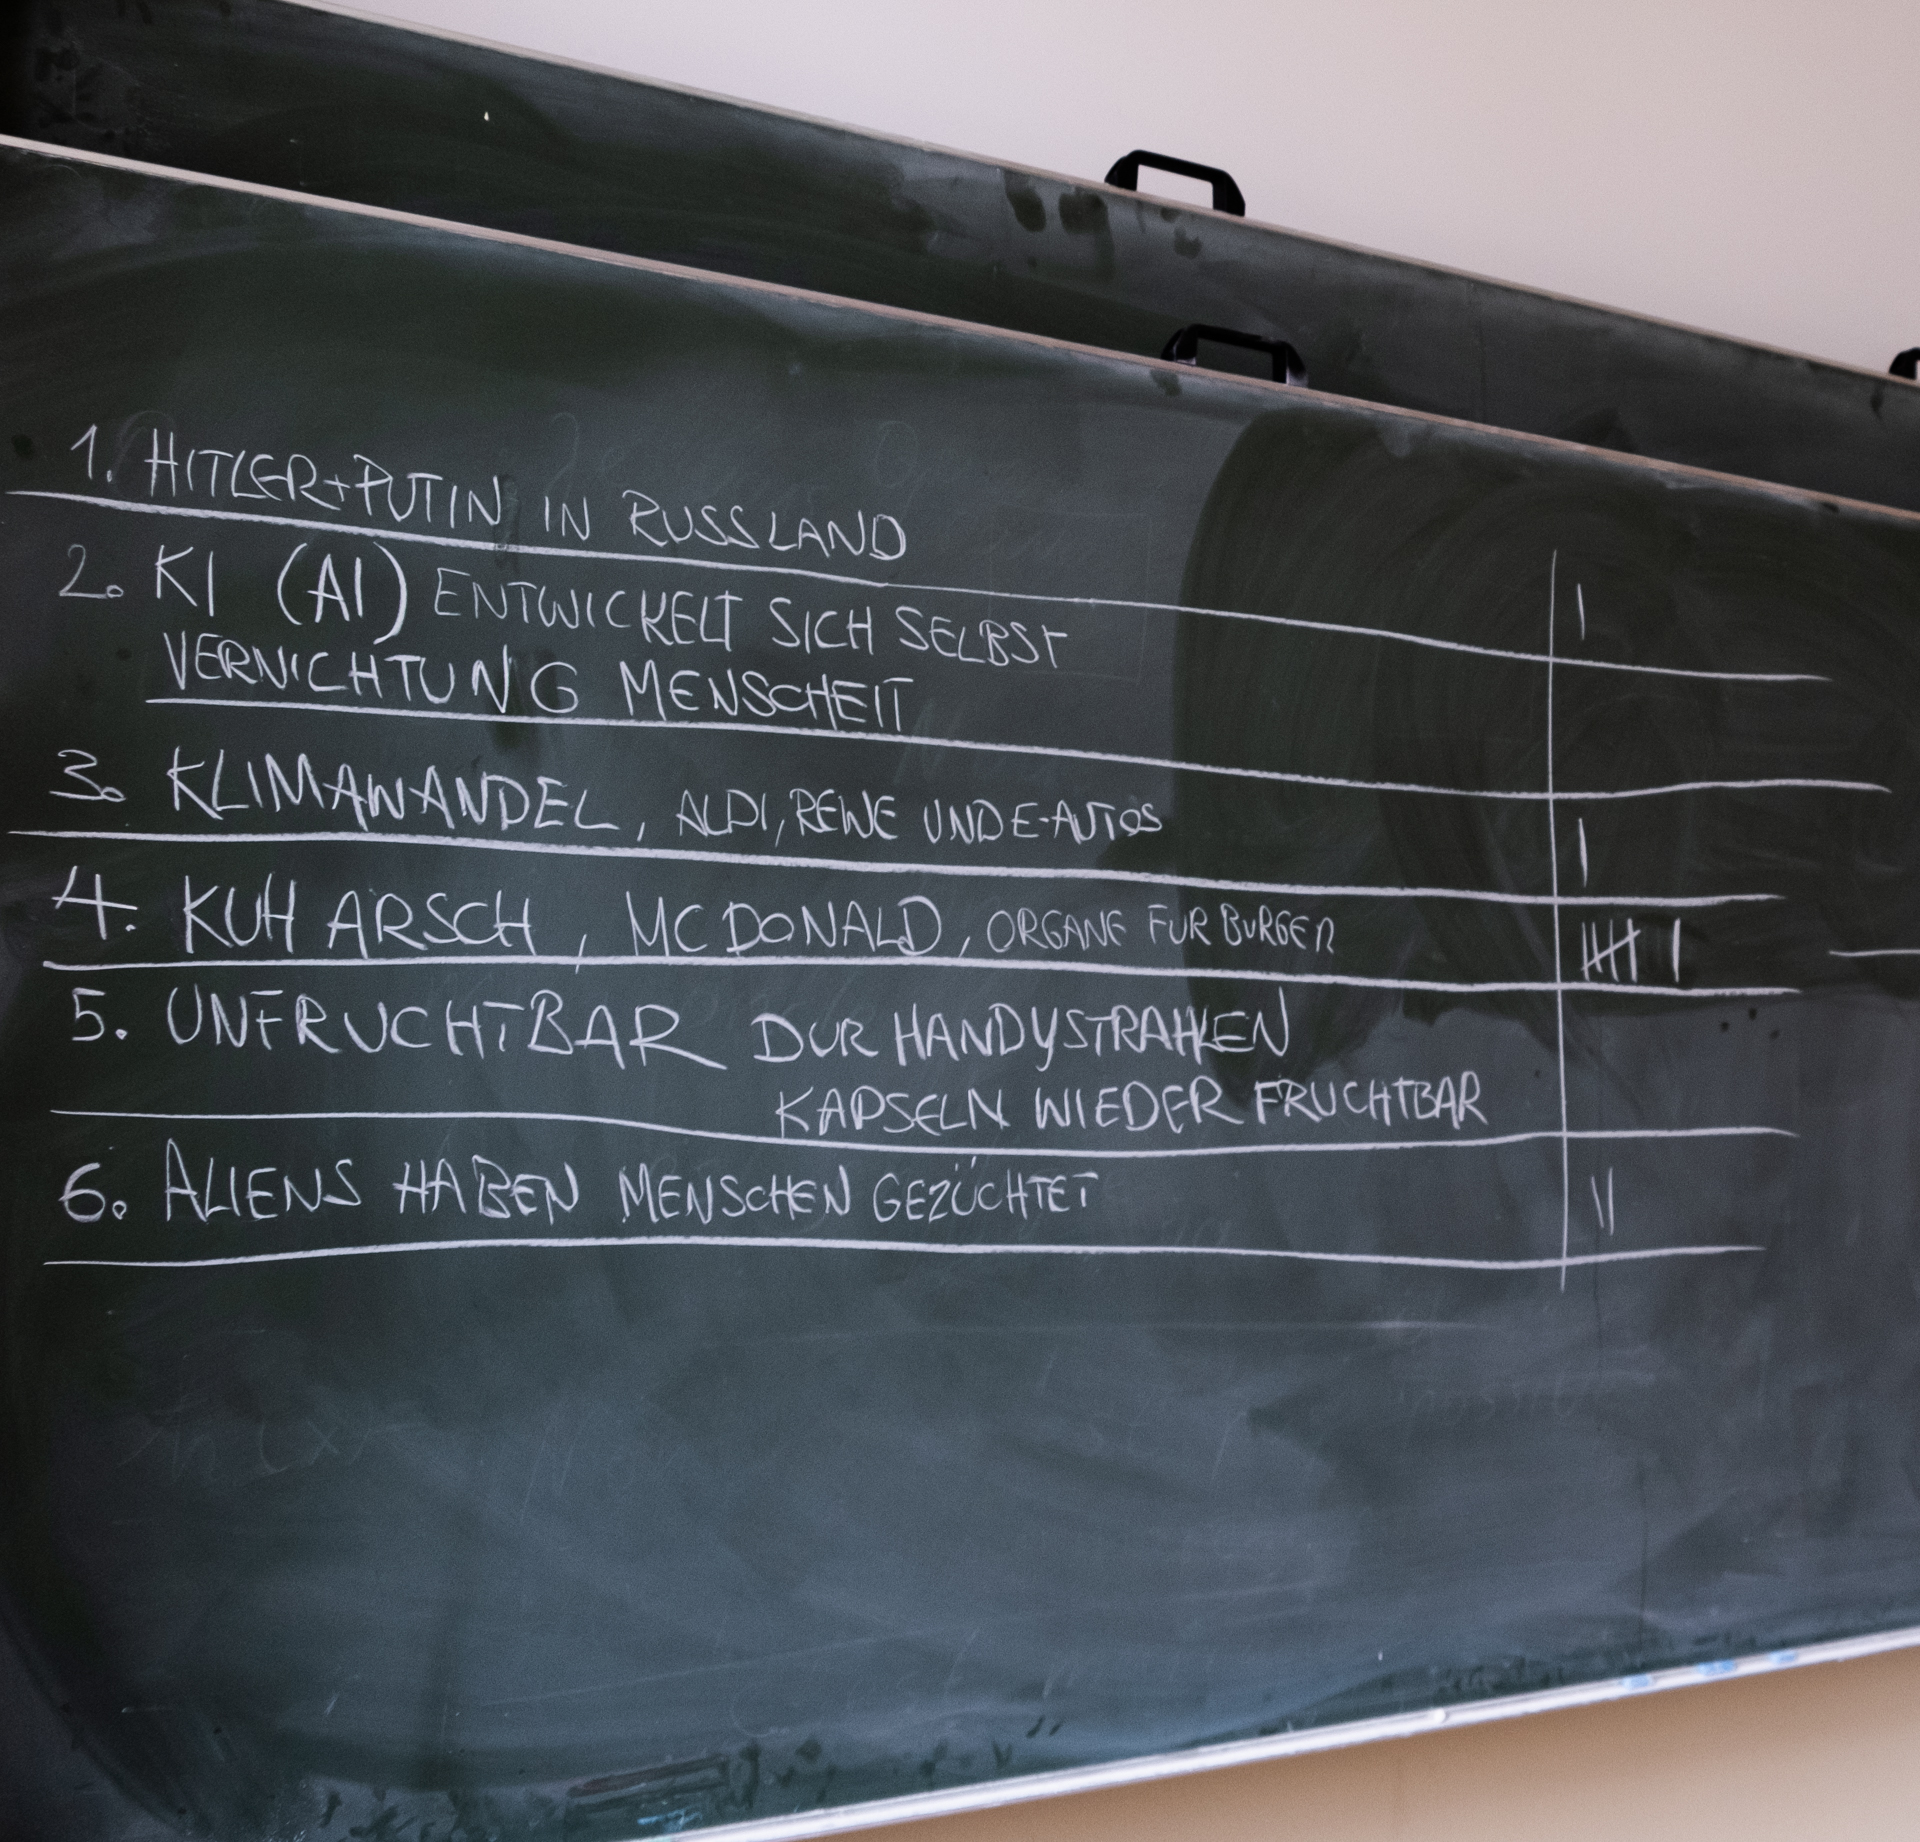 1. HITLER+PUTIN IN RUSSLAND
2. KI (AI) ENTWICKELT SICH SELBST I
VERNICHTUNG MENSCHEIT
3. KLIMAWANDEL, ALDI, REWE UND E-AUTOS I
4. KUH ARSCH, MC DONALD, ORGANE FUR BURGER IIII I
5. UNFRUCHTBAR DUR HANDYSTRAHLEN
KAPSELN WIEDER FRUCHTBAR
6. ALIENS HABEN MENSCHEN GEZÜCHTET II